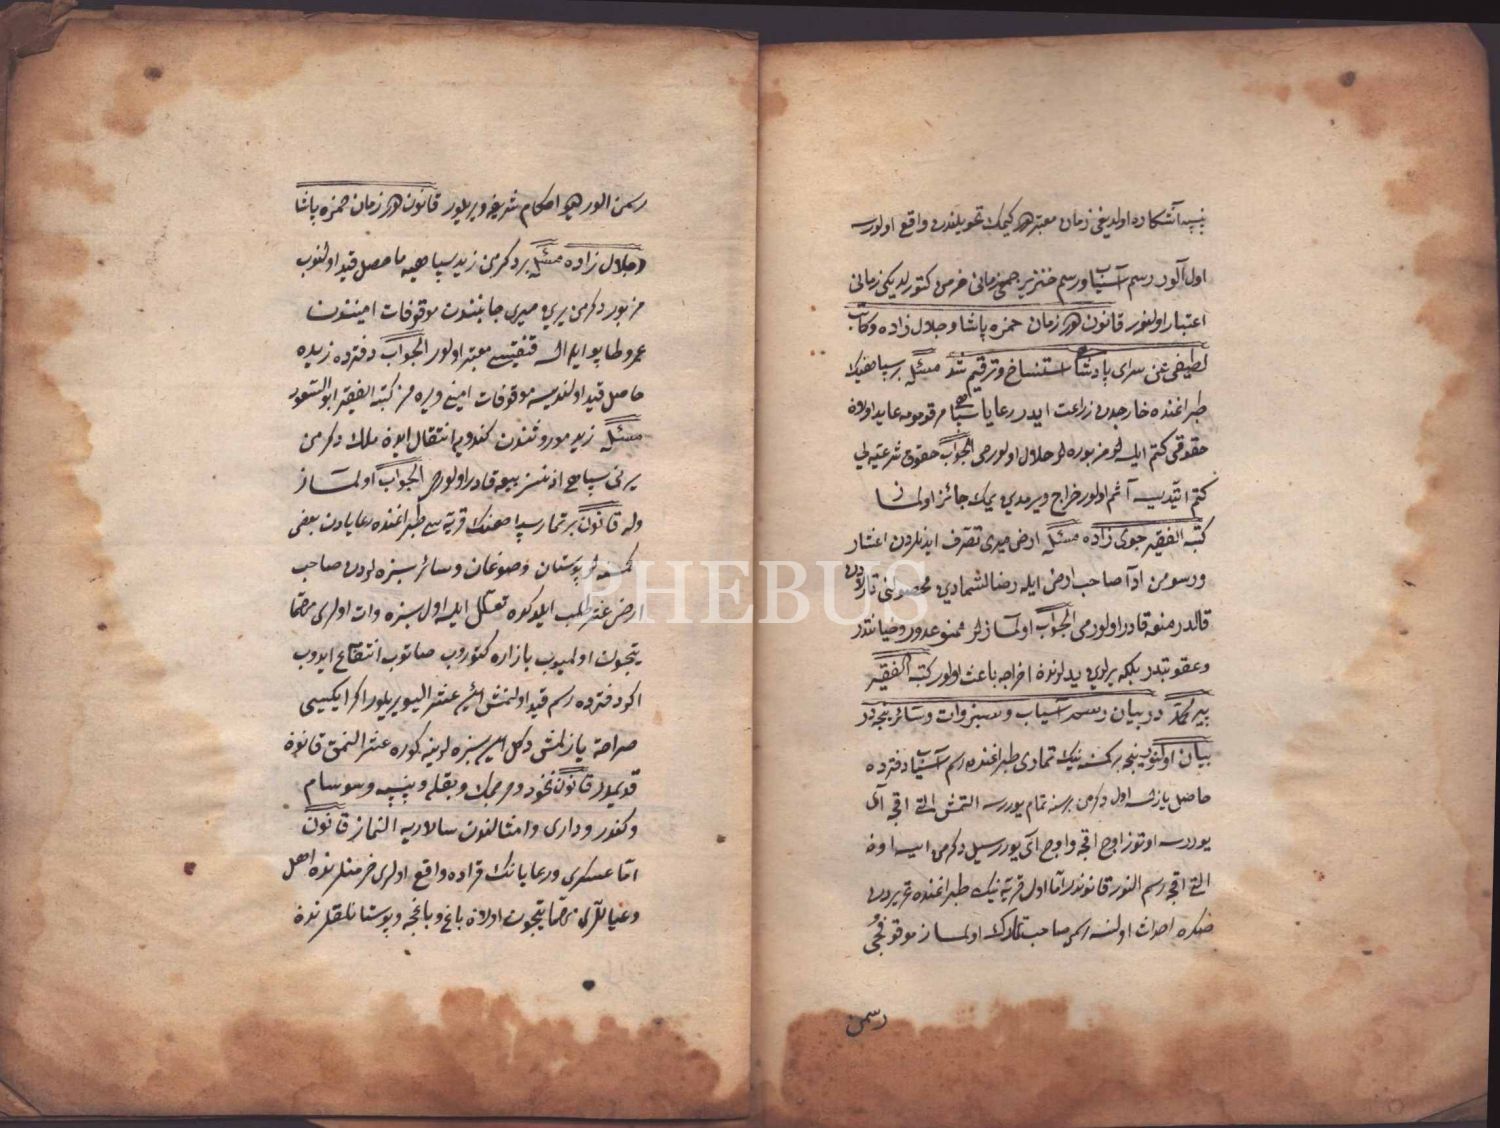 نیسه آشکاده اولدیغی زمان معتبردر کیمك تحویلنده واقع اولورسه
اول آلور رسم آسیاب و رسم خنزیر جمع زمانی خرمن کتورلدیکی زمانی
اعتبار اولنور قانون در زمان حمزه پاشا و جلال زاده و کاتب
لطیفی عن سرای پادشاهی استنساخ و ترقیم شد مسئله بر سپاهینك
طپراغنده خارجدن زراعت ایدن رعایا سپاهی مرقومه عاید اولان
حقوقی کتم ایلسه لر مزبوره لر حلال اولورمی الجواب حقوق شرعیه یی
کتم ایتدیسه آثم اولور خراج ویرمدین یمك جائز اولماز
کتبه الفقیر جوی زاده مسئله ارض میری تصرف ایدنلردن اعشار
و رسومن ادا صاحب ارض ایله رضالشمادین محصولنی تارلادن
قالدرمغه قادر اولورمی الجواب اولماز لر ممنوعدر و خیانتدر
و عقوبتدر بلکه یرلری یدلرندن اخراجه باعث اولور کتبه الفقیر
پیر محمد در بیان رسم آسیاب و سبزوات و سائر ینجه در
بیان اولنور نیجه بر کمسه نیك تماری طپراغنده رسم آسیاب دفترده
حاصل یازلسه اول دکرمن بر سنه تمام یوررسه التمش التی اقچه آلتی آی
یوررسه اوتوز اوچ اقچه و اوچ آی یوررسیل دکرمنی ایسه اون
التی اقچه رسم النور قانوندر اما اول قریه نیك طپراغنده تحریردن
صکره احداث اولنسه رسمی صاحب تمارك اولماز موقوفجی
رسمن
رسمن الور هپ احکام شریفه ویریلور قانون در زمان حمزه پاشا
و جلال زاده مسئله بر دکرمن زید سپاهییه حاصل قید اولنوب
مزبور دکرمن یرین میری جانبندن موقوفات امینندن
عمرو طاپو ایله السه قنقیسی معتبر اولور الجواب دفترده زیده
حاصل قید اولندیسه موقوفات امینی ویره مز کتبه الفقیر ابو السعود
مسئله زید موروثندن کندویه انتقال ایدن ملك دکرمن
یرنی سپاهی اذنسز بیعه قادر اولورمی الجواب اولماز
وله قانون بر تمار سپاهینك قریه سی طپراغنده رعایادن بعضی
کمسه لر بوستان و صوغان و سائر سبزه لردن صاحب
ارض عشر طلب ایلدکده تعلل ایله اول سبزه وات اولری مهماتی
ایچون اولمیوب بازاره کتوروب صاتوب انتفاع ایدوب
اکر دفترده رسم قید اولنمش ایسه عشر الیویریلور اکر ایکیسی
صراحة یازلمش دکل ایسه سبزه لرینه کوره عشر النمق قانون
قدیمدر قانون نخود و مرجمك و بقله و پنبه و سوسام
و کنور و داری و امثالندن سالاریه النماز قانون
اما عسکری و رعایانك قراده واقع اولری خرمنلرنده اهل
و عیاللری مهماتی ایچون اولان باغ و باغچه و بوستانلقلرنده
PHEBUS